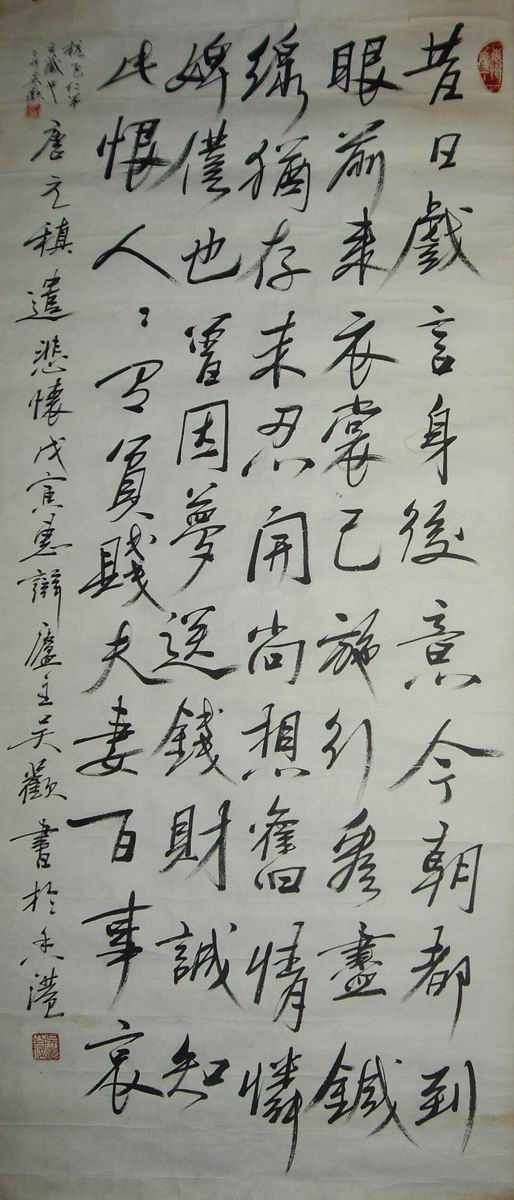 昔日戲言身後意今朝都到
眼前来衣裳已施行看盡鍼
線猶存未忍開尚想舊情憐
婢僕也曾因夢送錢財誠知
此恨人〻有貧賤夫妻百事哀
唐元稹遣悲懷戊寅辯廬主吴歡書於香港